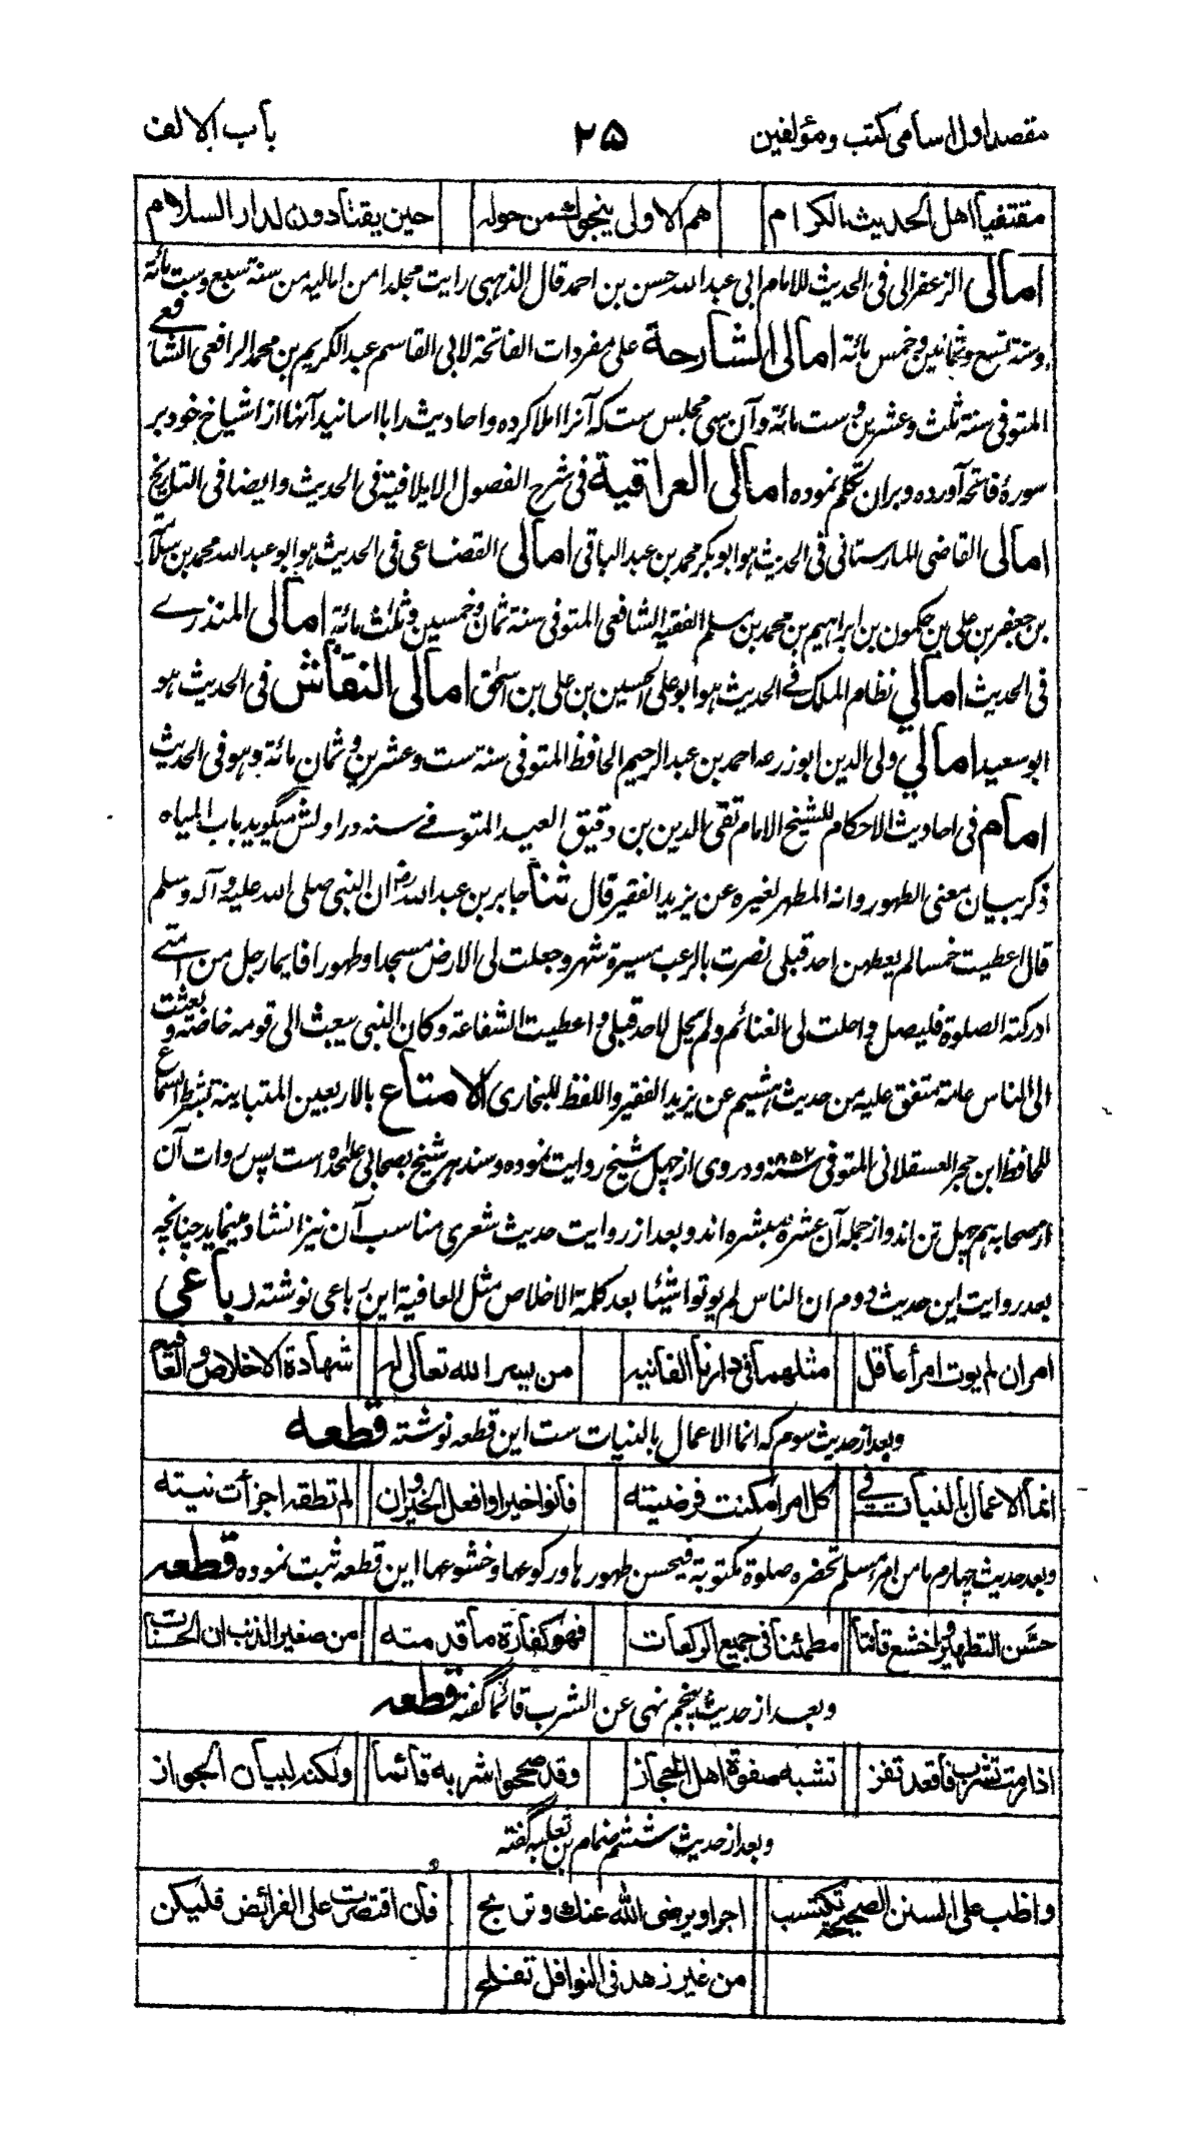 مقصد اول اسامی کتب و مؤلفین ۲۵ باب الالف
مقتفیا اهل الحدیث الکرام هم الاولی ینجو من حوله حین یقتادون لدار السلام
امالی الزعفرانی فی الحدیث للامام ابی عبدالله حسن بن احمد قال الذهبی رایت مجلدا من امالیه من سنة سبع وست مائة
وسنة تسع وثمانین وخمس مائة امالی الشارحة علی مفردات الفاتحة لابی القاسم عبدالکریم بن محمد الرافعی الشافعی
المتوفی سنة ثلث وعشرین وست مائة وآن سی مجلس ست که آنرا املا کرده و احادیث را با اسانید آنها از اشیاخ خود بر
سورهٔ فاتحه آورده و بران تکلم نموده امالی العراقیة فی شرح الفصول الایلاقیة فی الحدیث وایضا فی التاریخ
امالی القاضی المارستانی فی الحدیث هو ابوبکر محمد بن عبدالباقی امالی القضاعی فی الحدیث هو ابوعبدالله محمد بن سلامة
بن جعفر بن علی بن حکمون بن ابراهیم بن محمد بن مسلم الفقیه الشافعی المتوفی سنة ثمان وخمسین وثلث مائة امالی المنذرے
فی الحدیث امالی نظام الملک فے الحدیث هو ابو علی الحسین بن علی بن اسحٰق امالی النقاش فی الحدیث هو
ابو سعید امالی ولی الدین ابو زرعه احمد بن عبدالرحیم الحافظ المتوفی سنة ست وعشرین وثمان مائة وهو فی الحدیث
امام فی احادیث الاحکام للشیخ الامام تقی الدین بن دقیق العید المتوفے سنه در اولش میگوید باب المیاه
ذکر بیان معنی الطهور وانه المطهر لغیره عن یزید الفقیر قال ثنا جابر بن عبدالله رض ان النبی صلی الله علیه وآله وسلم
قال اعطیت خمسا لم یعطهن احد قبلی نصرت بالرعب مسیرة شهر وجعلت لی الارض مسجدا وطهورا فایما رجل من امتے
ادرکته الصلوة فلیصل واحلت لی الغنائم ولم یحل لاحد قبلی واعطیت الشفاعة وکان النبی یبعث الی قومه خاصة وبعثت
الی الناس عامة متفق علیه من حدیث هشیم عن یزید الفقیر واللفظ للبخاری الامتاع بالاربعین المتباینة بشرط السماع
للحافظ ابن حجر العسقلانی المتوفی سنه ۸۵۲ و در وی از چهل شیخ روایت نموده و سند هر شیخ بصحابی علیحده است پس روات آن
از صحابه هم چهل تن اند و از جمله آن عشرهٔ مبشره اند و بعد از روایت حدیث شعری مناسب آن نیز انشاد مینماید چنانچه
بعد روایت این حدیث دوم ان الناس لم یوتوا شیئا بعد کلمة الاخلاص مثل العافیة این رباعی نوشته رباعی
امران لم یوت امرأ عاقل مثلهما فی دارنا الفانیه من یسر الله تعالی له شهادة الاخلاص والعافیه
وبعد از حدیث سوم که انما الاعمال بالنیات ست این قطعه نوشته قطعه
انما الاعمال بالنیات فی کل امر امکنت فرضیته فانو خیرا وافعل الخیر وان لم تطقه اجزأت نیته
وبعد حدیث چهارم ما من امرء مسلم تحضره صلوة مکتوبة فیحسن طهورها ورکوعها وخشوعها این قطعه ثبت نموده قطعه
حسّن التطهیر واخشع قانتا مطمئنا فی جمیع الرکعات فهو کفارة ما قدمته من صغیر الذنب ان الحسنات
وبعد از حدیث پنجم نهی عن الشرب قائما گفته قطعه
اذا رمت تشرب فاقعد تفز تشبه صفوة اهل الحجاز وقد صححوا شربه قائما ولکنه لبیان الجواز
وبعد از حدیث ششم ضمام بن ثعلبه گفته
واظب علی السنن الصحیحة تکتسب اجرا ویرضی الله عنک وتربح فان اقتصرت علی الفرائض فلیکن
من غیر زهد فی النوافل تفلح